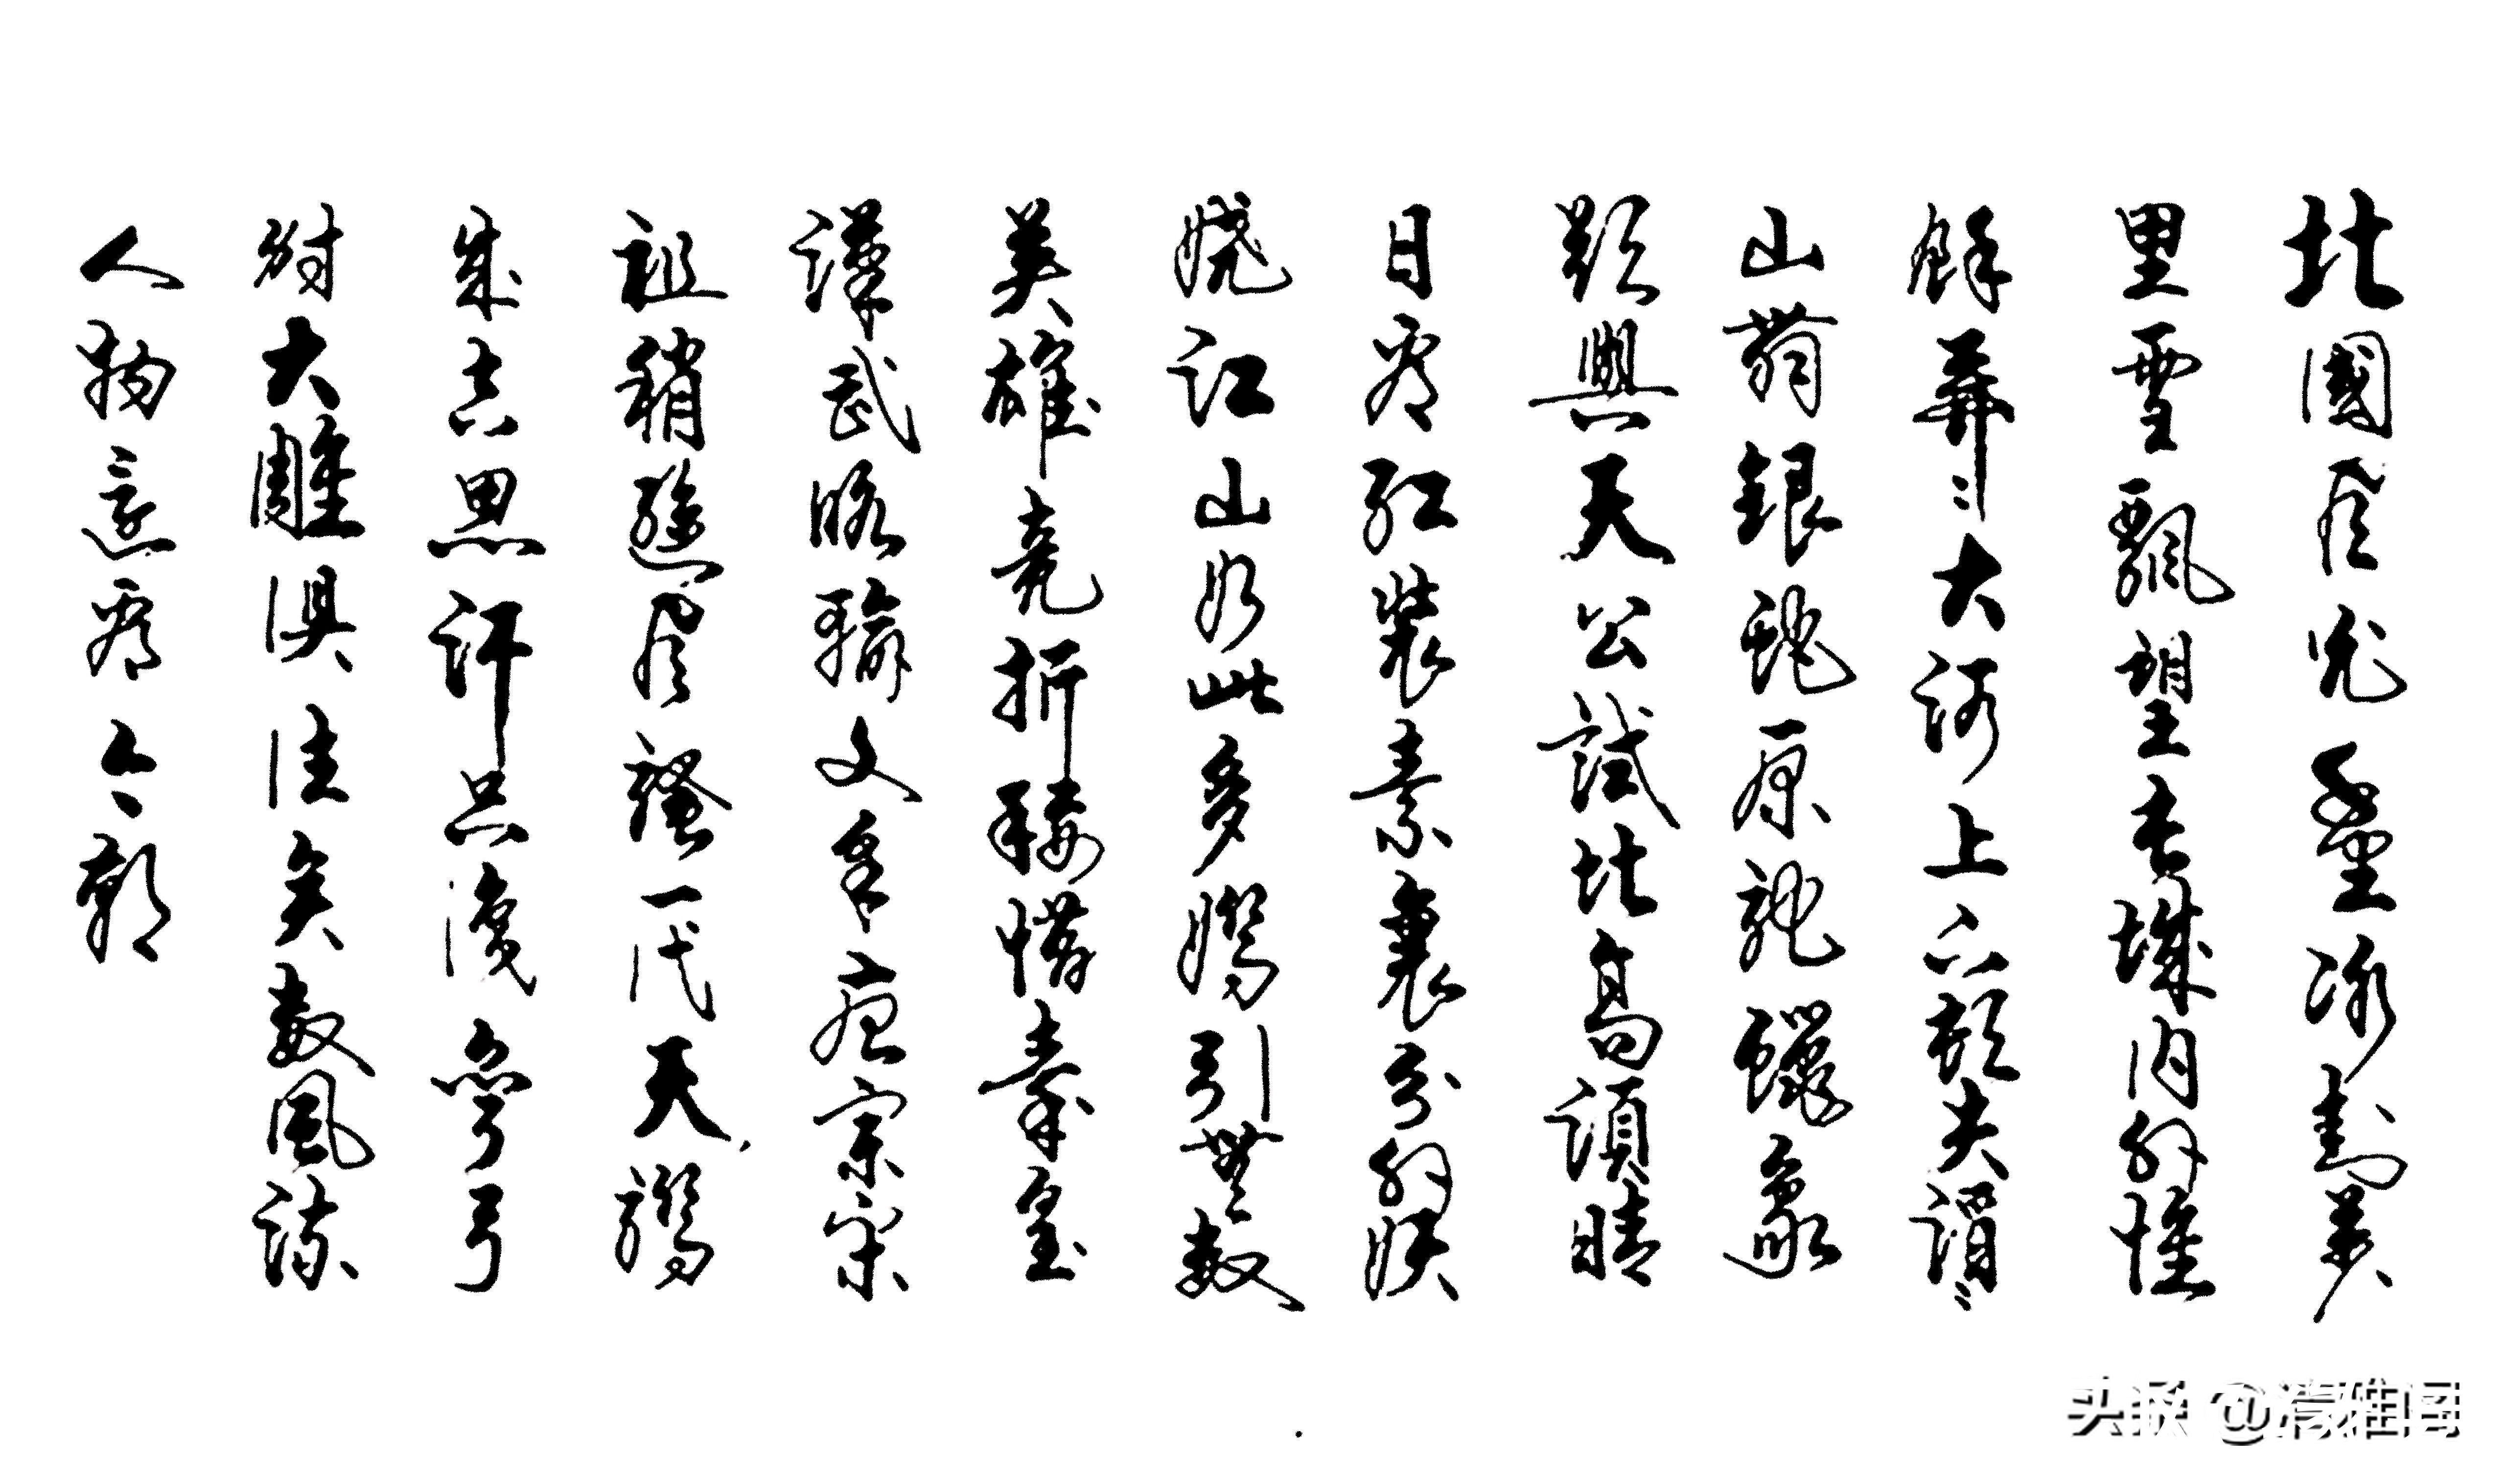 北國風光千里冰封萬
里雪飄望長城內外惟
餘莽々大河上下頓失滔々
山舞銀蛇原馳蠟象
欲與天公試比高須晴
日看紅裝素裹分外妖
嬈江山如此多嬌引無數
英雄競折腰惜秦皇
漢武略輸文采唐宗宋
祖稍遜風騷一代天驕
成吉思汗只識彎弓
射大雕俱往矣數風流
人物還看今朝
头条 @清雅阁